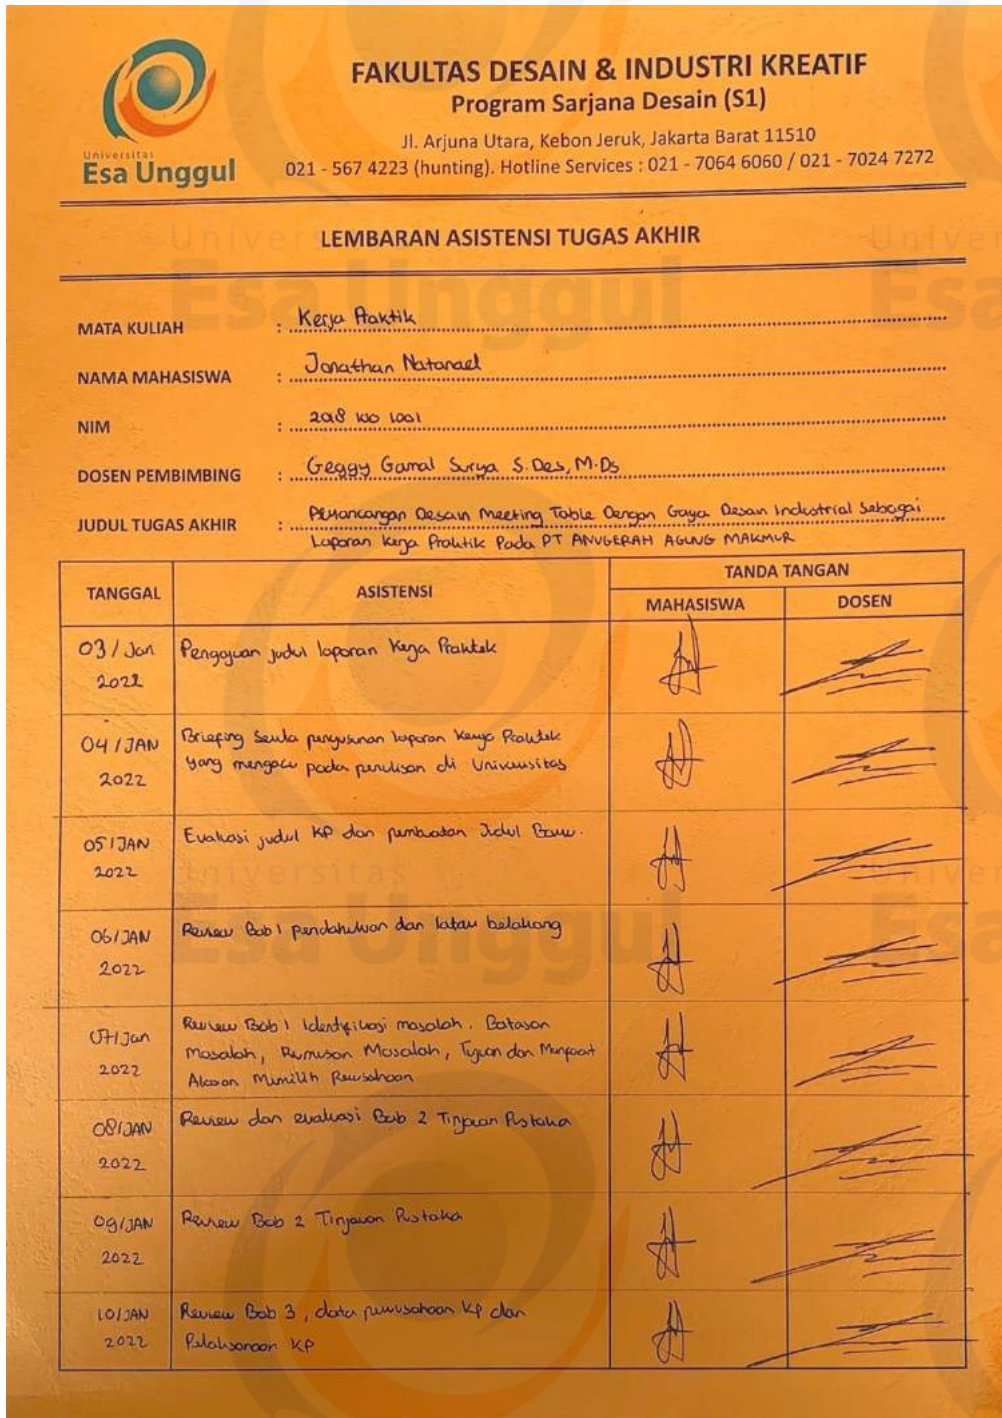 Universitas
Esa Unggul
FAKULTAS DESAIN & INDUSTRI KREATIF
Program Sarjana Desain (S1)
Jl. Arjuna Utara, Kebon Jeruk, Jakarta Barat 11510
021 - 567 4223 (hunting). Hotline Services : 021 - 7064 6060 / 021 - 7024 7272
LEMBARAN ASISTENSI TUGAS AKHIR
MATA KULIAH : Kerja Praktik
NAMA MAHASISWA : Jonathan Natanael
NIM : 2018 100 1001
DOSEN PEMBIMBING : Geggy Gamal Surya S.Des, M.Ds
JUDUL TUGAS AKHIR : Perancangan Desain Meeting Table Dengan Gaya Desain Industrial Sebagai
Laporan Kerja Praktik Pada PT ANUGERAH AGUNG MAKMUR
TANGGAL ASISTENSI TANDA TANGAN
MAHASISWA DOSEN
03/Jan Pengajuan judul laporan Kerja Praktek
2022
04/JAN Briefing penyusunan laporan Kerja Praktek
2022 yang mengacu pada penulisan di Universitas
05/JAN Evaluasi judul KP dan pembuatan Judul Baru.
2022
06/JAN Review Bab 1 pendahuluan dan latar belakang
2022
07/Jan Review Bab 1 Identifikasi masalah. Batasan
2022 Masalah, Rumusan Masalah, Tujuan dan Manfaat
Alasan Memilih Perusahaan
08/JAN Review dan evaluasi Bab 2 Tinjauan Pustaka
2022
09/JAN Review Bab 2 Tinjauan Pustaka
2022
10/JAN Review Bab 3, data perusahaan KP dan
2022 Pelaksanaan KP